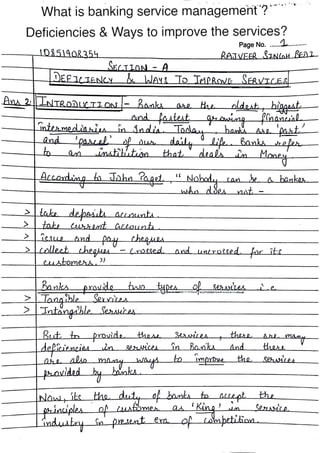 What is banking service management ?
Deficiencies & Ways to improve the services?
Page No. 1
10851908354 RAJVEER SINGH BEDI
SECTION - A
DEFICIENCY & WAYS TO IMPROVE SERVICES
Ans 2: INTRODUCTION - Banks are the oldest, biggest
and fastest growing financial
intermediaries in India. Today banks are 'part'
and 'parcel' of our daily life. Banks refer
to an institution that deals in Money
According to John Paget, "Nobody can be a banker
who does not -
> take deposits accounts.
> take current accounts.
> issue and pay cheques
> collect cheques - crossed and uncrossed for its
customers."
Banks provide two types of services i.e
> Tangible Services
> Intangible Services
But to provide these services, there are many
deficiencies in services in Banks and there
are also many ways to improve the services
provided by banks.
Now, its the duty of banks to accept the
principles of customer as 'King' in service
industry in present era of competition.